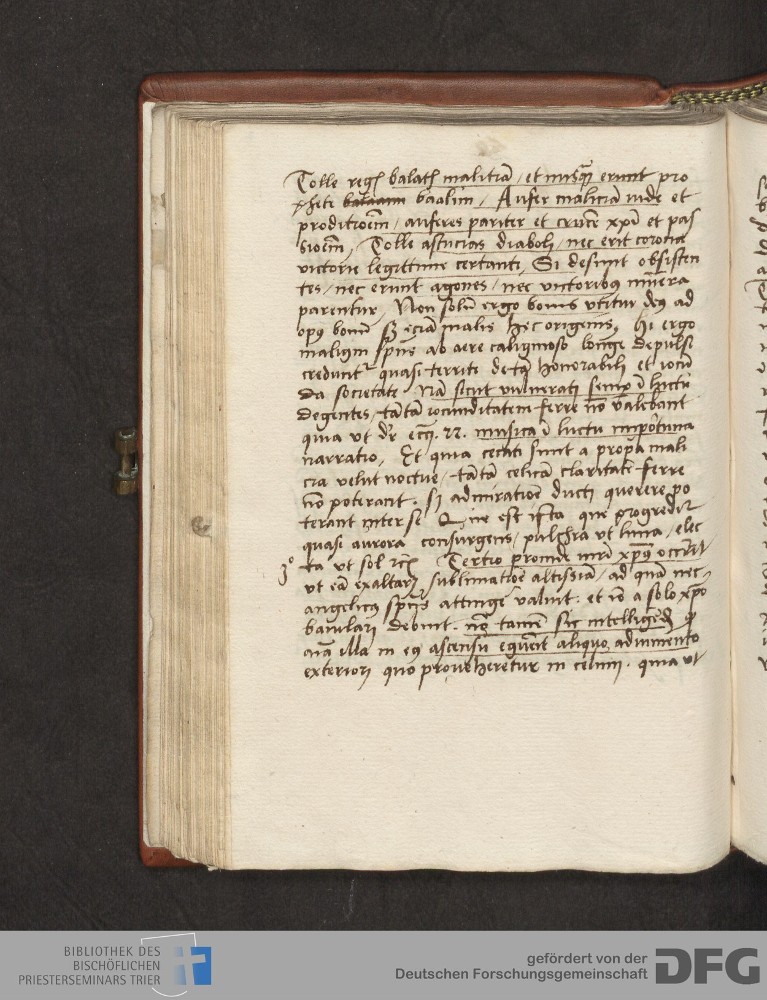 Tolle regꝭ balath malitiā / et nusqͣ erunt pro
phete balaam baalim / Aufer maliciā iude et
proditioēm / auferes pariter et crucē xp̄i et pas
sioēm / Tolle astucias diaboli / nec erit corona
victorie legittime certanti / Si desunt obsisten
tes / nec erunt agones / nec victoribꝰ mūnera
parentur / Non solū ergo bonis vtitur deꝰ ad
opꝰ bonū sꝫ eciā malis hec origenis / Hi ergo
maligni sp̄us ab aere caliginoso longe depulsi
creduntͬ quasi territi de tā honorabili et iocū
da societate Nā sicut vulnerati semꝑ ī luctu
degentes / tātā iocunditatem ferre nō valebant
quia vt dr̄ eccī. 22. musica ī luctu importuna
narratio / Et quia cecati sunt a propͥa mali
cia velut noctue / tātā celicā claritatē ferre
nō poterant. sꝫ admiratioē ducti querere po
terant inter se Que est ista que progreditͬ
quasi aurora consurgens / pulchra vt luna / elec
3º ta vt sol rcꝭ Tertio proinde
vt eā exaltarꝫ sublimatioē altissimā / ad quā nec
angelicꝰ sp̄us attinge valuit. et iō a solo xp̄o
baiulari debuit. nō tamē sic intelligēdū ꝙ
aīa illa in eꝰ ascensu eguerit aliquo adiumento
exteriori quo proueheretur in celum. quia vt
BIBLIOTHEK DES
BISCHÖFLICHEN
PRIESTERSEMINARS TRIER
gefördert von der
Deutschen Forschungsgemeinschaft
DFG